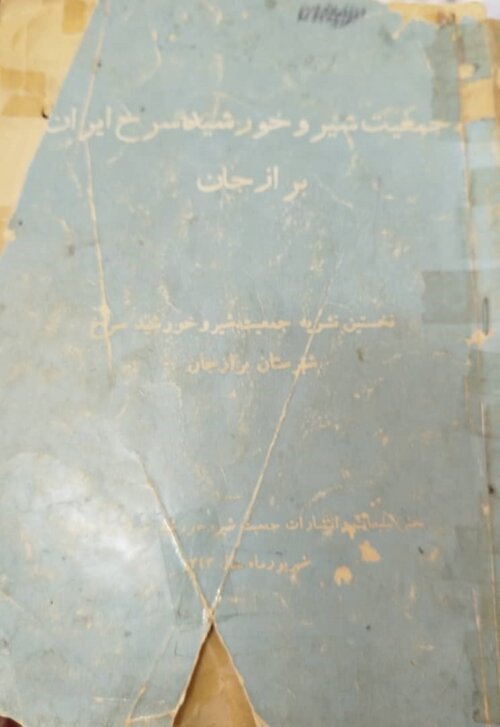 جمعیت شیر و خورشید سرخ ایران
برازجان
نخستین نشریه جمعیت شیر و خورشید سرخ
شهرستان برازجان
انتشارات جمعیت شیر و
شهریور ماه